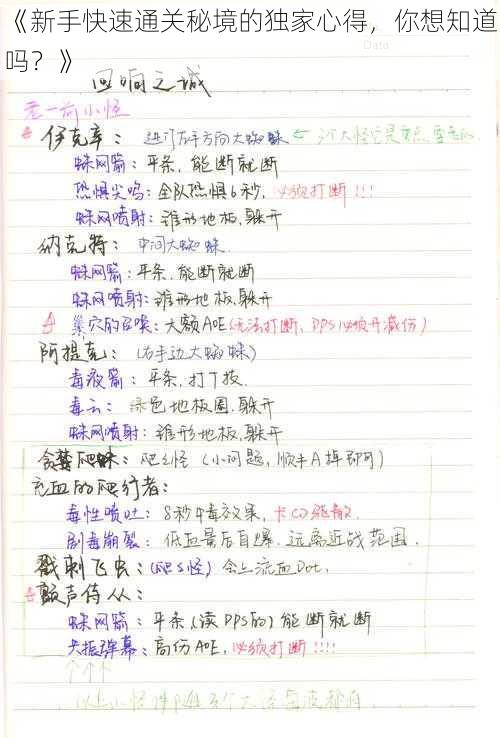 《新手快速通关秘境的独家心得，你想知道
吗？》
Data
回响之城
老一前小怪
伊克辛：进门左手方向大蜘蛛 ← 3个大怪它是重点，要先
蛛网箭：平条，能断就断
恐惧尖鸣：全队恐惧6秒，必须打断!!!
蛛网喷射：锥形地板，躲开
纳克特：中间大蜘蛛.
蛛网箭：平条，能断就断
蛛网喷射：锥形地板，躲开
巢穴的召唤：大额AOE(无法打断，DPS必须开减伤)
阿提克：(右手边大蜘蛛)
毒液箭：平条，打下技.
毒云：绿色地板圈，躲开
蛛网喷射：锥形地板，躲开
贪婪爬蛛：爬s怪(小问题，顺手A掉即可)
充血的爬行者：
毒性喷吐：8秒中毒效果，卡CD驱散.
剧毒崩裂：低血量后自爆.远离近战范围.
戳刺飞虫：(爬s怪)会上流血Dot.
颤声侍从：
蛛网箭：平条(读DPS的)能断就断
共振弹幕：高伤AOE，必须打断!!!!
↑ ↑ ↑
以上小怪 3个大怪每波都有